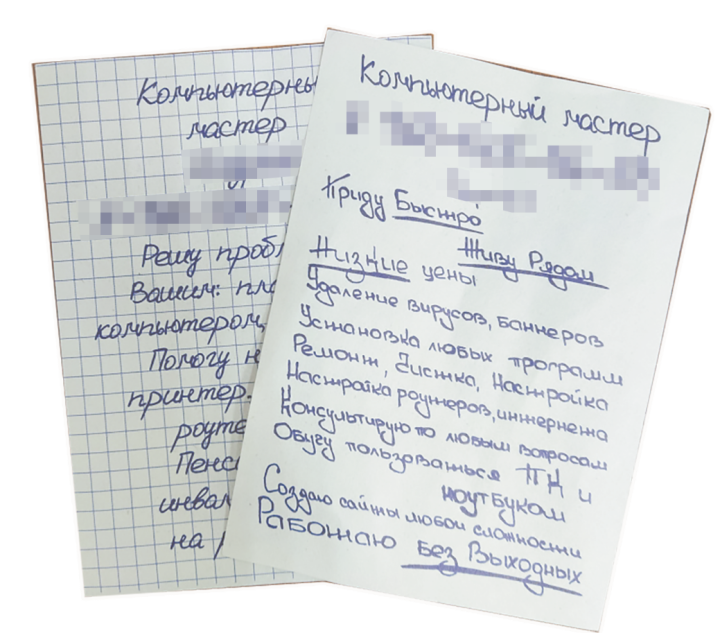 Компьютерны
мастер
Решу пробл
Вашим: пла
компьютером,
Помогу н
принтер.
роуте
Пенс
инвал
на
Компьютерный мастер
Приду Быстро
Живу Рядом
Низкие цены
Удаление вирусов, баннеров
Установка любых программ
Ремонт, Чистка, Настройка
Настройка роутеров, интернета
Консультирую по любым вопросам
Обучу пользоваться ПК и
ноутбуком
Создаю сайты любой сложности
Работаю без Выходных